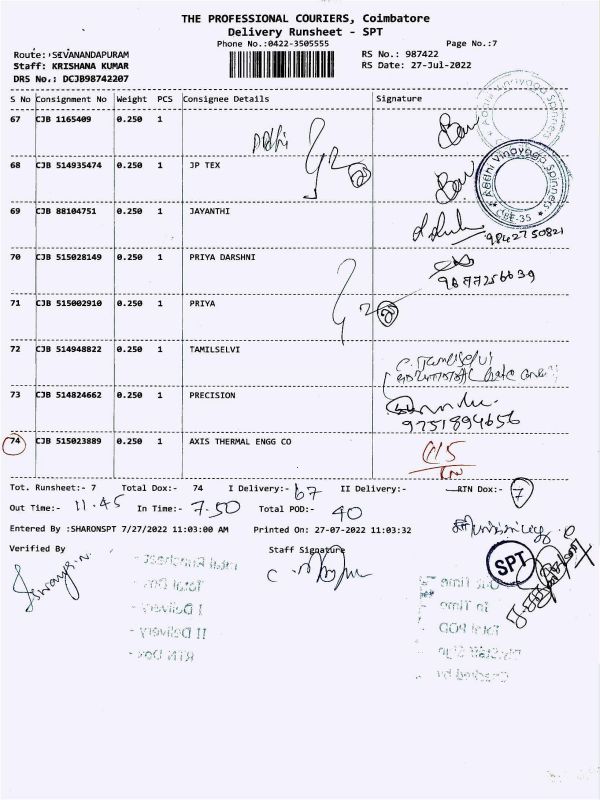 THE PROFESSIONAL COURIERS, Coimbatore
Delivery Runsheet - SPT
Phone No.:0422-3505555
Page No.:7
Route: SIVANANDAPURAM
RS No.: 987422
Staff: KRISHANA KUMAR
RS Date: 27-Jul-2022
DRS No.: DCJB98742207
S No Consignment No Weight PCS Consignee Details Signature
67 CJB 1165409 0.250 1
68 CJB 514935474 0.250 1 JP TEX
Aadhi Vinayaga Spinners
* CBE-35 *
69 CJB 88104751 0.250 1 JAYANTHI
9842750821
70 CJB 515028149 0.250 1 PRIYA DARSHNI
71 CJB 515002910 0.250 1 PRIYA
72 CJB 514948822 0.250 1 TAMILSELVI
73 CJB 514824662 0.250 1 PRECISION
9751894656
74 CJB 515023889 0.250 1 AXIS THERMAL ENGG CO
Tot. Runsheet:- 7 Total Dox:- 74 I Delivery:- 67 II Delivery:- RTN Dox:- 7
Out Time:- 11.45 In Time:- 7.50 Total POD:- 40
Entered By :SHARONSPT 7/27/2022 11:03:00 AM Printed On: 27-07-2022 11:03:32
Verified By Staff Signature
SPT
Total Runsheet -
Total Dox -
I Delivery -
II Delivery -
RTN Dox -
Out Time
In Time
Total POD
Checked by